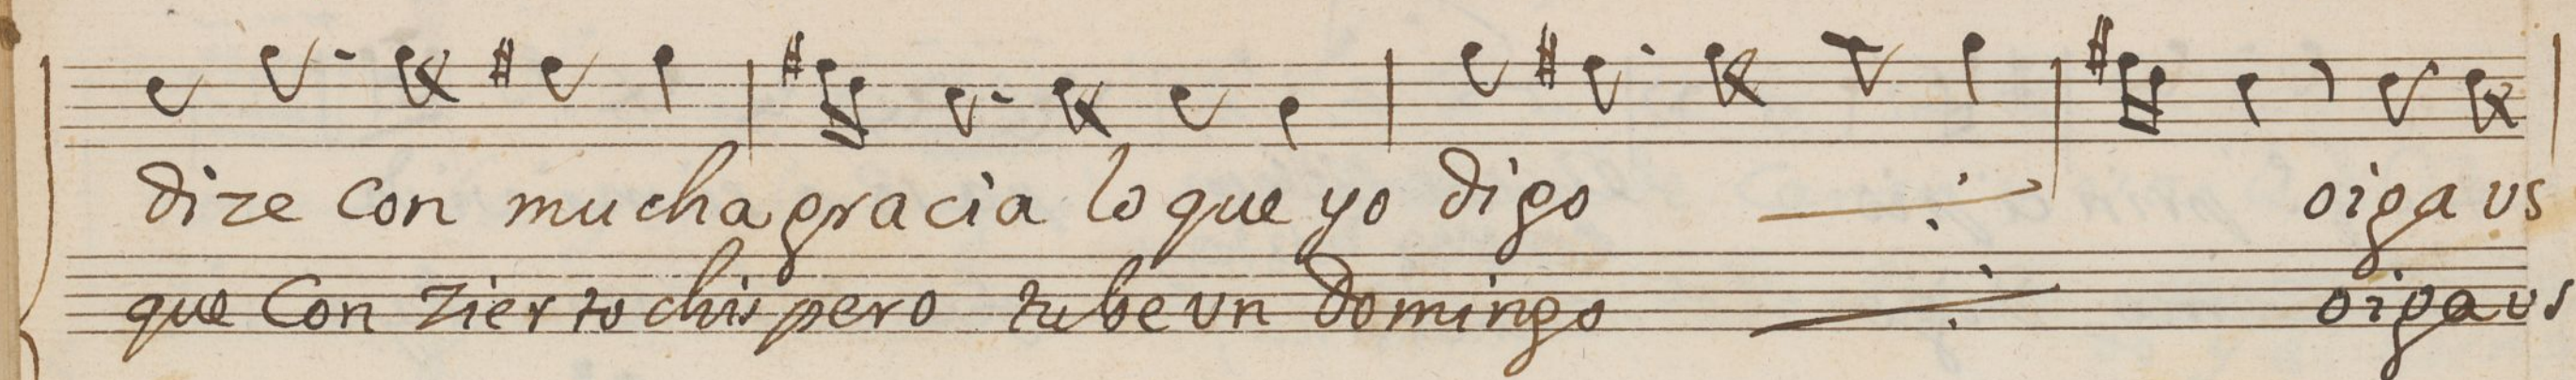 dize con mucha gracia lo que yo digo oiga us
que Con zierto chispero tube un domingo oiga us